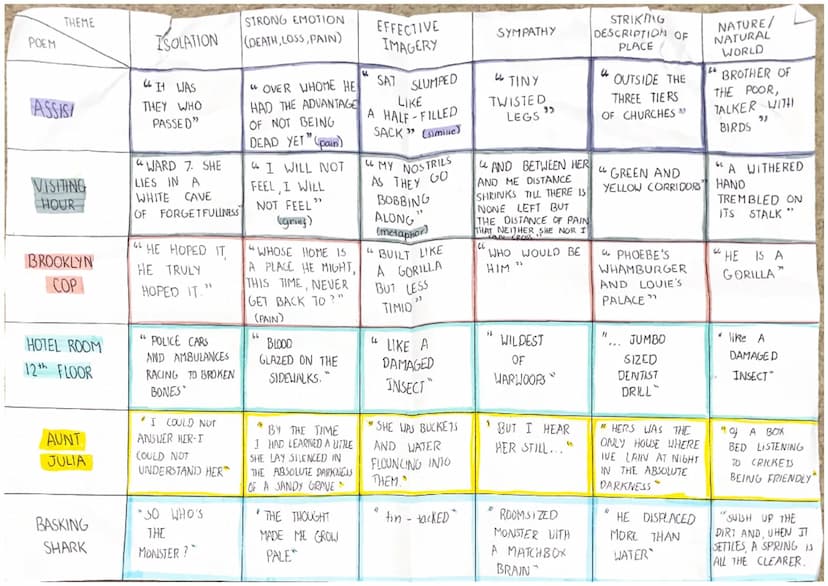 THEME
POEM
ISOLATION
STRONG EMOTION
(DEATH, LOSS, PAIN)
EFFECTIVE
IMAGERY
SYMPATHY
STRIKING
DESCRIPTION OF
PLACE
NATURE/
NATURAL
WORLD
ASSISI
"It WAS
THEY WHO
PASSED"
"OVER WHOME HE
HAD THE ADVANTAGE
OF NOT BEING
DEAD YET" (pain)
"SAT SLUMPED
LIKE
A HALF-FILLED
SACK" (simile)
"TINY
TWISTED
LEGS"
"OUTSIDE THE
THREE TIERS
OF CHURCHES"
"BROTHER OF
THE POOR,
TALKER WITH
BIRDS"
VISITING
HOUR
"WARD 7. SHE
LIES IN A
WHITE CAVE
OF FORGETFULLNESS"
"I WILL NOT
FEEL, I WILL
NOT FEEL"
(grief)
"MY NOSTRILS
AS THEY GO
BOBBING
ALONG"
(metaphor)
"AND BETWEEN HER
AND ME DISTANCE
SHRINKS TILL THERE IS
NONE LEFT BUT
THE DISTANCE OF PAIN
THAT NEITHER SHE NOR I
CAN CROSS"
"GREEN AND
YELLOW CORRIDORS"
"A WITHERED
HAND
TREMBLED ON
ITS STALK"
BROOKLYN
COP
"HE HOPED IT,
HE TRULY
HOPED IT."
"WHOSE HOME IS
A PLACE HE MIGHT,
THIS TIME, NEVER
GET BACK TO?"
(PAIN)
"BUILT LIKE
A GORILLA
BUT LESS
TIMID"
"WHO WOULD BE
HIM"
"PHOEBE'S
WHAMBURGER
AND LOUIE'S
PALACE"
"HE IS A
GORILLA"
HOTEL ROOM
12th FLOOR
"POLICE CARS
AND AMBULANCES
RACING TO BROKEN
BONES"
"BLOOD
GLAZED ON THE
SIDEWALKS."
"LIKE A
DAMAGED
INSECT"
"WILDEST
OF
WARWOOPS"
"... JUMBO
SIZED
DENTIST
DRILL"
"like A
DAMAGED
INSECT"
AUNT
JULIA
"I COULD NOT
ANSWER HER-I
COULD NOT
UNDERSTAND HER"
"BY THE TIME
I HAD LEARNED A LITTLE
SHE LAY SILENCED IN
THE ABSOLUTE DARKNESS
OF A SANDY GRAVE"
"SHE WAS BUCKETS
AND WATER
FLOUNCING INTO
THEM"
"BUT I HEAR
HER STILL..."
"HERS WAS THE
ONLY HOUSE WHERE
IVE LAIN AT NIGHT
IN THE ABSOLUTE
DARKNESS"
"Of A BOX
BED LISTENING
TO CRICKETS
BEING FRIENDLY"
BASKING
SHARK
"SO WHO'S
THE
MONSTER?"
"THE THOUGHT
MADE ME GROW
PALE"
"tin-tacked"
"ROOMSIZED
MONSTER WITH
A MATCHBOX
BRAIN"
"HE DISPLACED
MORE THAN
WATER"
"SWISH UP THE
DIRT AND, WHEN IT
SETTLES, A SPRING IS
ALL THE CLEARER.